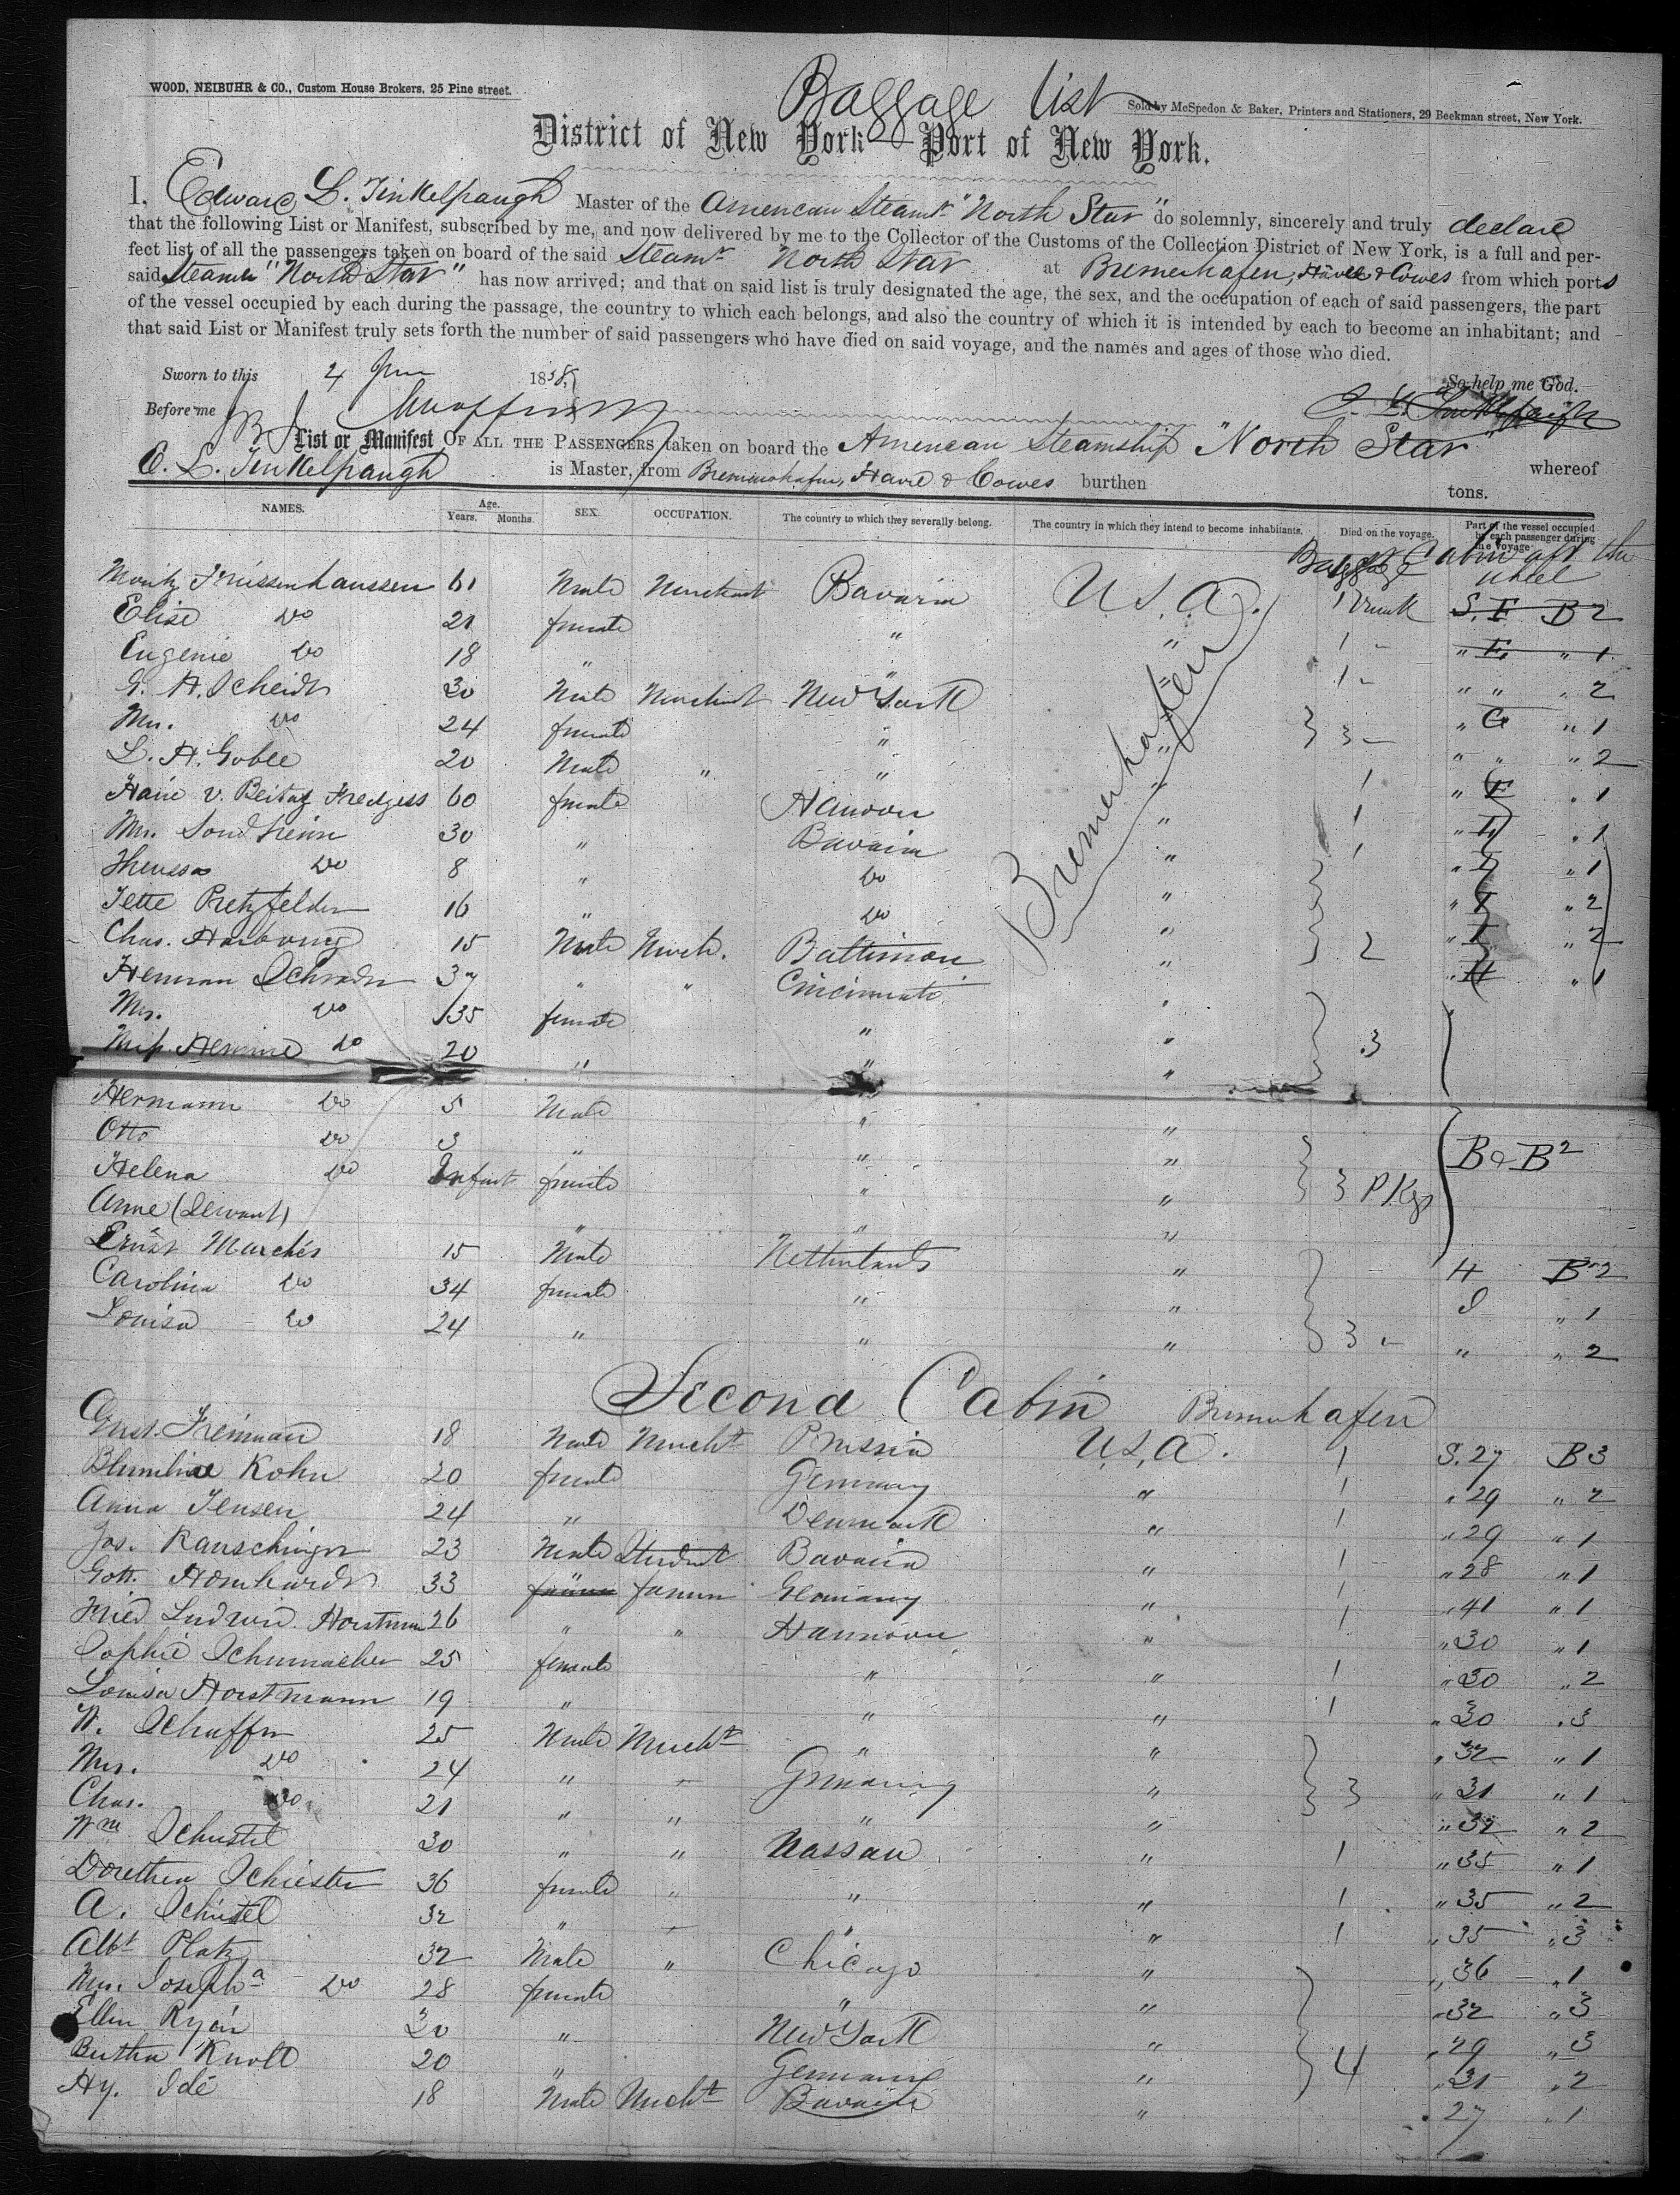 Baggage list
WOOD, NEIBUHR & CO., Custom House Brokers, 25 Pine street.
Sold by McSpedon & Baker, Printers and Stationers, 29 Beekman street, New York.
District of New York—Port of New York.
I, Edward L. Tinkelpaugh Master of the American Steamr "North Star" do solemnly, sincerely and truly declare
that the following List or Manifest, subscribed by me, and now delivered by me to the Collector of the Customs of the Collection District of New York, is a full and per-
fect list of all the passengers taken on board of the said Steamr North Star at Bremerhafen, Havre & Cowes from which ports
said Steamer "North Star" has now arrived; and that on said list is truly designated the age, the sex, and the occupation of each of said passengers, the part
of the vessel occupied by each during the passage, the country to which each belongs, and also the country of which it is intended by each to become an inhabitant; and
that said List or Manifest truly sets forth the number of said passengers who have died on said voyage, and the names and ages of those who died.
Sworn to this 4 June 1858, So help me God.
Before me
List or Manifest OF ALL THE PASSENGERS taken on board the American Steamship "North Star" whereof
E. L. Tinkelpaugh is Master, from Bremerhafen, Havre & Cowes burthen tons.
NAMES. Age. Years. Months. SEX. OCCUPATION. The country to which they severally belong. The country in which they intend to become inhabitants. Died on the voyage. Part of the vessel occupied by each passenger during the voyage
Baggage Cabin aft the wheel
Moritz 61 Male Merchant Bavaria U.S.A. 1 Trunk S. E B 2
Elise do 21 female " " 1 - " E " 1
Eugenie do 18 " " " 1 - " " " 2
G. A. Scheidt 30 Male Merchant New York " " G " 1
Mrs. do 24 female " " 3 - " " " 2
L. A. Goble 20 Male " " " 1 " F " 1
60 female Hanover " 1 " " 1
Mrs. Sondheim 30 " Bavaria " 1 " " 1
Theresa do 8 " do " " " 2
Jette Pretzfelder 16 " do " " " 2
Chas. Harbourg 15 Male Merch. Baltimore " 2 " H " 1
Herman Schrader 37 " " Cincinnati "
Mrs. do 35 female " "
Miss Hermine do 20 " " " 3
Bremerhafen
Hermann do 5 Male " "
Otto do 3 " " " B & B 2
Helena do Infant female " " 3 Pkgs
Anne (Servant) " " "
Ernst Marchés 15 Male Netherlands " H B 2
Carolina do 34 female " " I " 1
Louisa do 24 " " " 3 - " " 2
Second Cabin Bremerhafen
Gust. Freiman 18 Male Mercht Prussia U.S.A. 1 S. 27 B 3
Blumline Kohn 20 female Germany " 1 " 29 " 2
Anna Jensen 24 " Denmark " 1 " 29 " 1
Jos. Rauschinger 23 Male Student Bavaria " 1 " 28 " 1
Gott. 33 farmer Germany " 1 " 41 " 1
Fried Ludwig Horstman 26 " " Hannover " 1 " 30 " 1
Sophie Schumacher 25 female " " 1 " 30 " 2
Louisa Horstmann 19 " " " 1 " 30 " 3
W. Schaffer 25 Male Mercht " " " 32 " 1
Mrs. do 24 " Germany " 3 " 31 " 1
Chas. do 21 " " " " " 32 " 2
Wm 30 " " Nassau " 1 " 35 " 1
Dorethea 36 female " " " 1 " 35 " 2
A. 32 " " " 1 " 35 " 3
Albt Platz 32 Male " Chicago " " 36 " 1
Mrs. Josepha do 28 female " " " 32 " 3
Ellen Ryan 20 " New York " " 29 " 3
Bertha Knoll 20 " Germany " 4 " 31 " 2
Hy. Ide 18 Male Mercht Bavaria " " 27 " 1